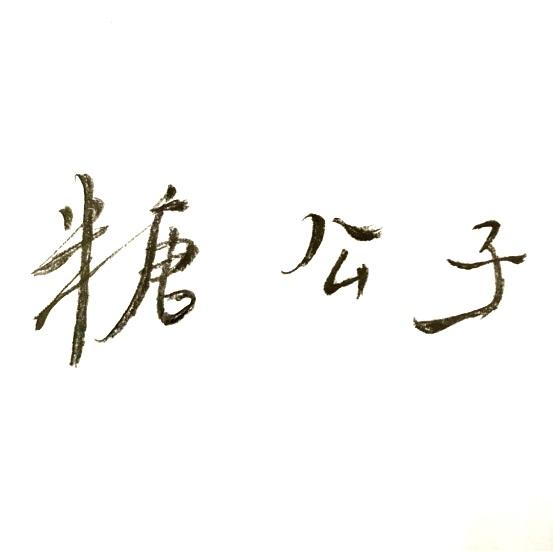 糖公子